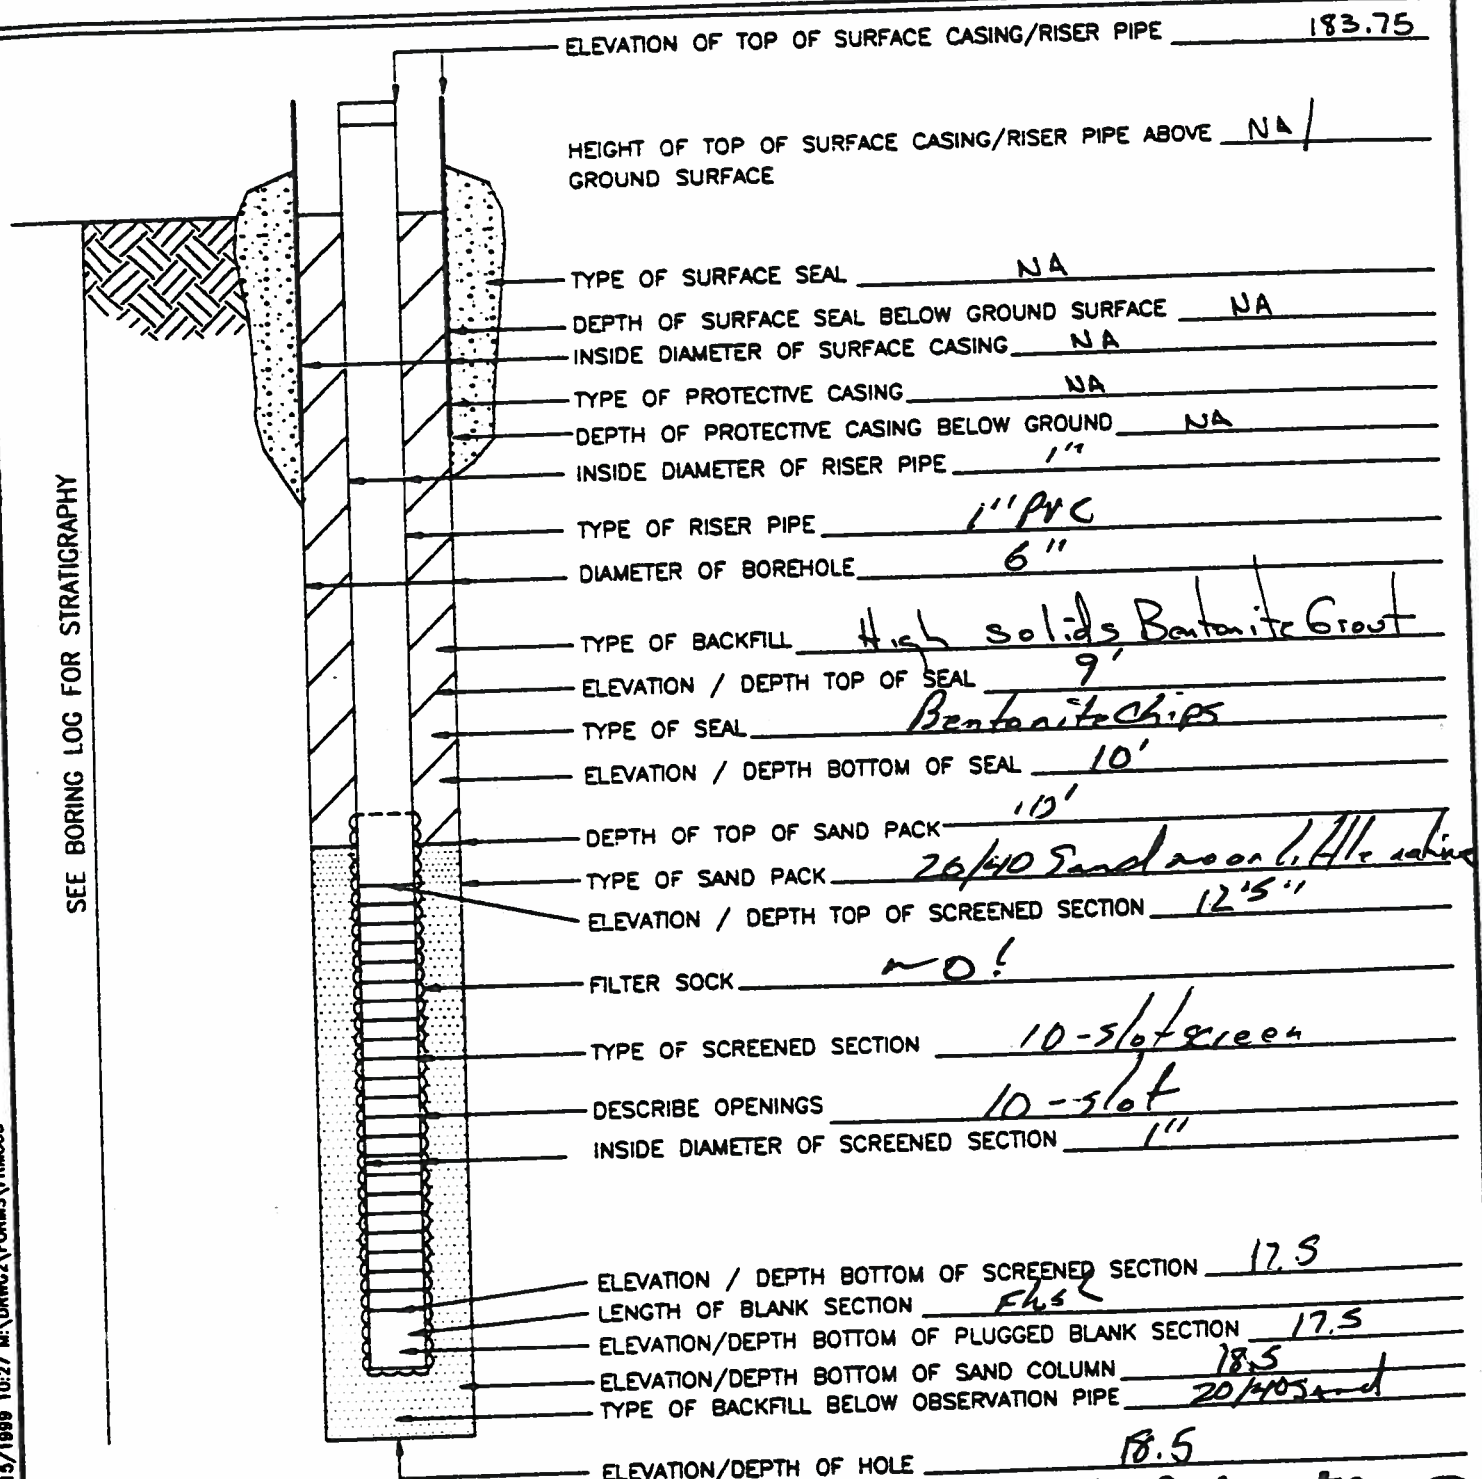 ELEVATION OF TOP OF SURFACE CASING/RISER PIPE 183.75
HEIGHT OF TOP OF SURFACE CASING/RISER PIPE ABOVE NA
GROUND SURFACE
TYPE OF SURFACE SEAL NA
DEPTH OF SURFACE SEAL BELOW GROUND SURFACE NA
INSIDE DIAMETER OF SURFACE CASING NA
TYPE OF PROTECTIVE CASING NA
DEPTH OF PROTECTIVE CASING BELOW GROUND NA
INSIDE DIAMETER OF RISER PIPE 1"
TYPE OF RISER PIPE 1" PVC
DIAMETER OF BOREHOLE 6"
TYPE OF BACKFILL High solids Bentonite Grout
ELEVATION / DEPTH TOP OF SEAL 9'
TYPE OF SEAL Bentonite Chips
ELEVATION / DEPTH BOTTOM OF SEAL 10'
DEPTH OF TOP OF SAND PACK 10'
TYPE OF SAND PACK 20/40 Sand no or little native
ELEVATION / DEPTH TOP OF SCREENED SECTION 12'5"
FILTER SOCK NO!
TYPE OF SCREENED SECTION 10-slot screen
DESCRIBE OPENINGS 10-slot
INSIDE DIAMETER OF SCREENED SECTION 1"
ELEVATION / DEPTH BOTTOM OF SCREENED SECTION 17.5
LENGTH OF BLANK SECTION
ELEVATION/DEPTH BOTTOM OF PLUGGED BLANK SECTION 17.5
ELEVATION/DEPTH BOTTOM OF SAND COLUMN 18.5
TYPE OF BACKFILL BELOW OBSERVATION PIPE 20/40 Sand
ELEVATION/DEPTH OF HOLE 18.5
SEE BORING LOG FOR STRATIGRAPHY
15/1999 10:27